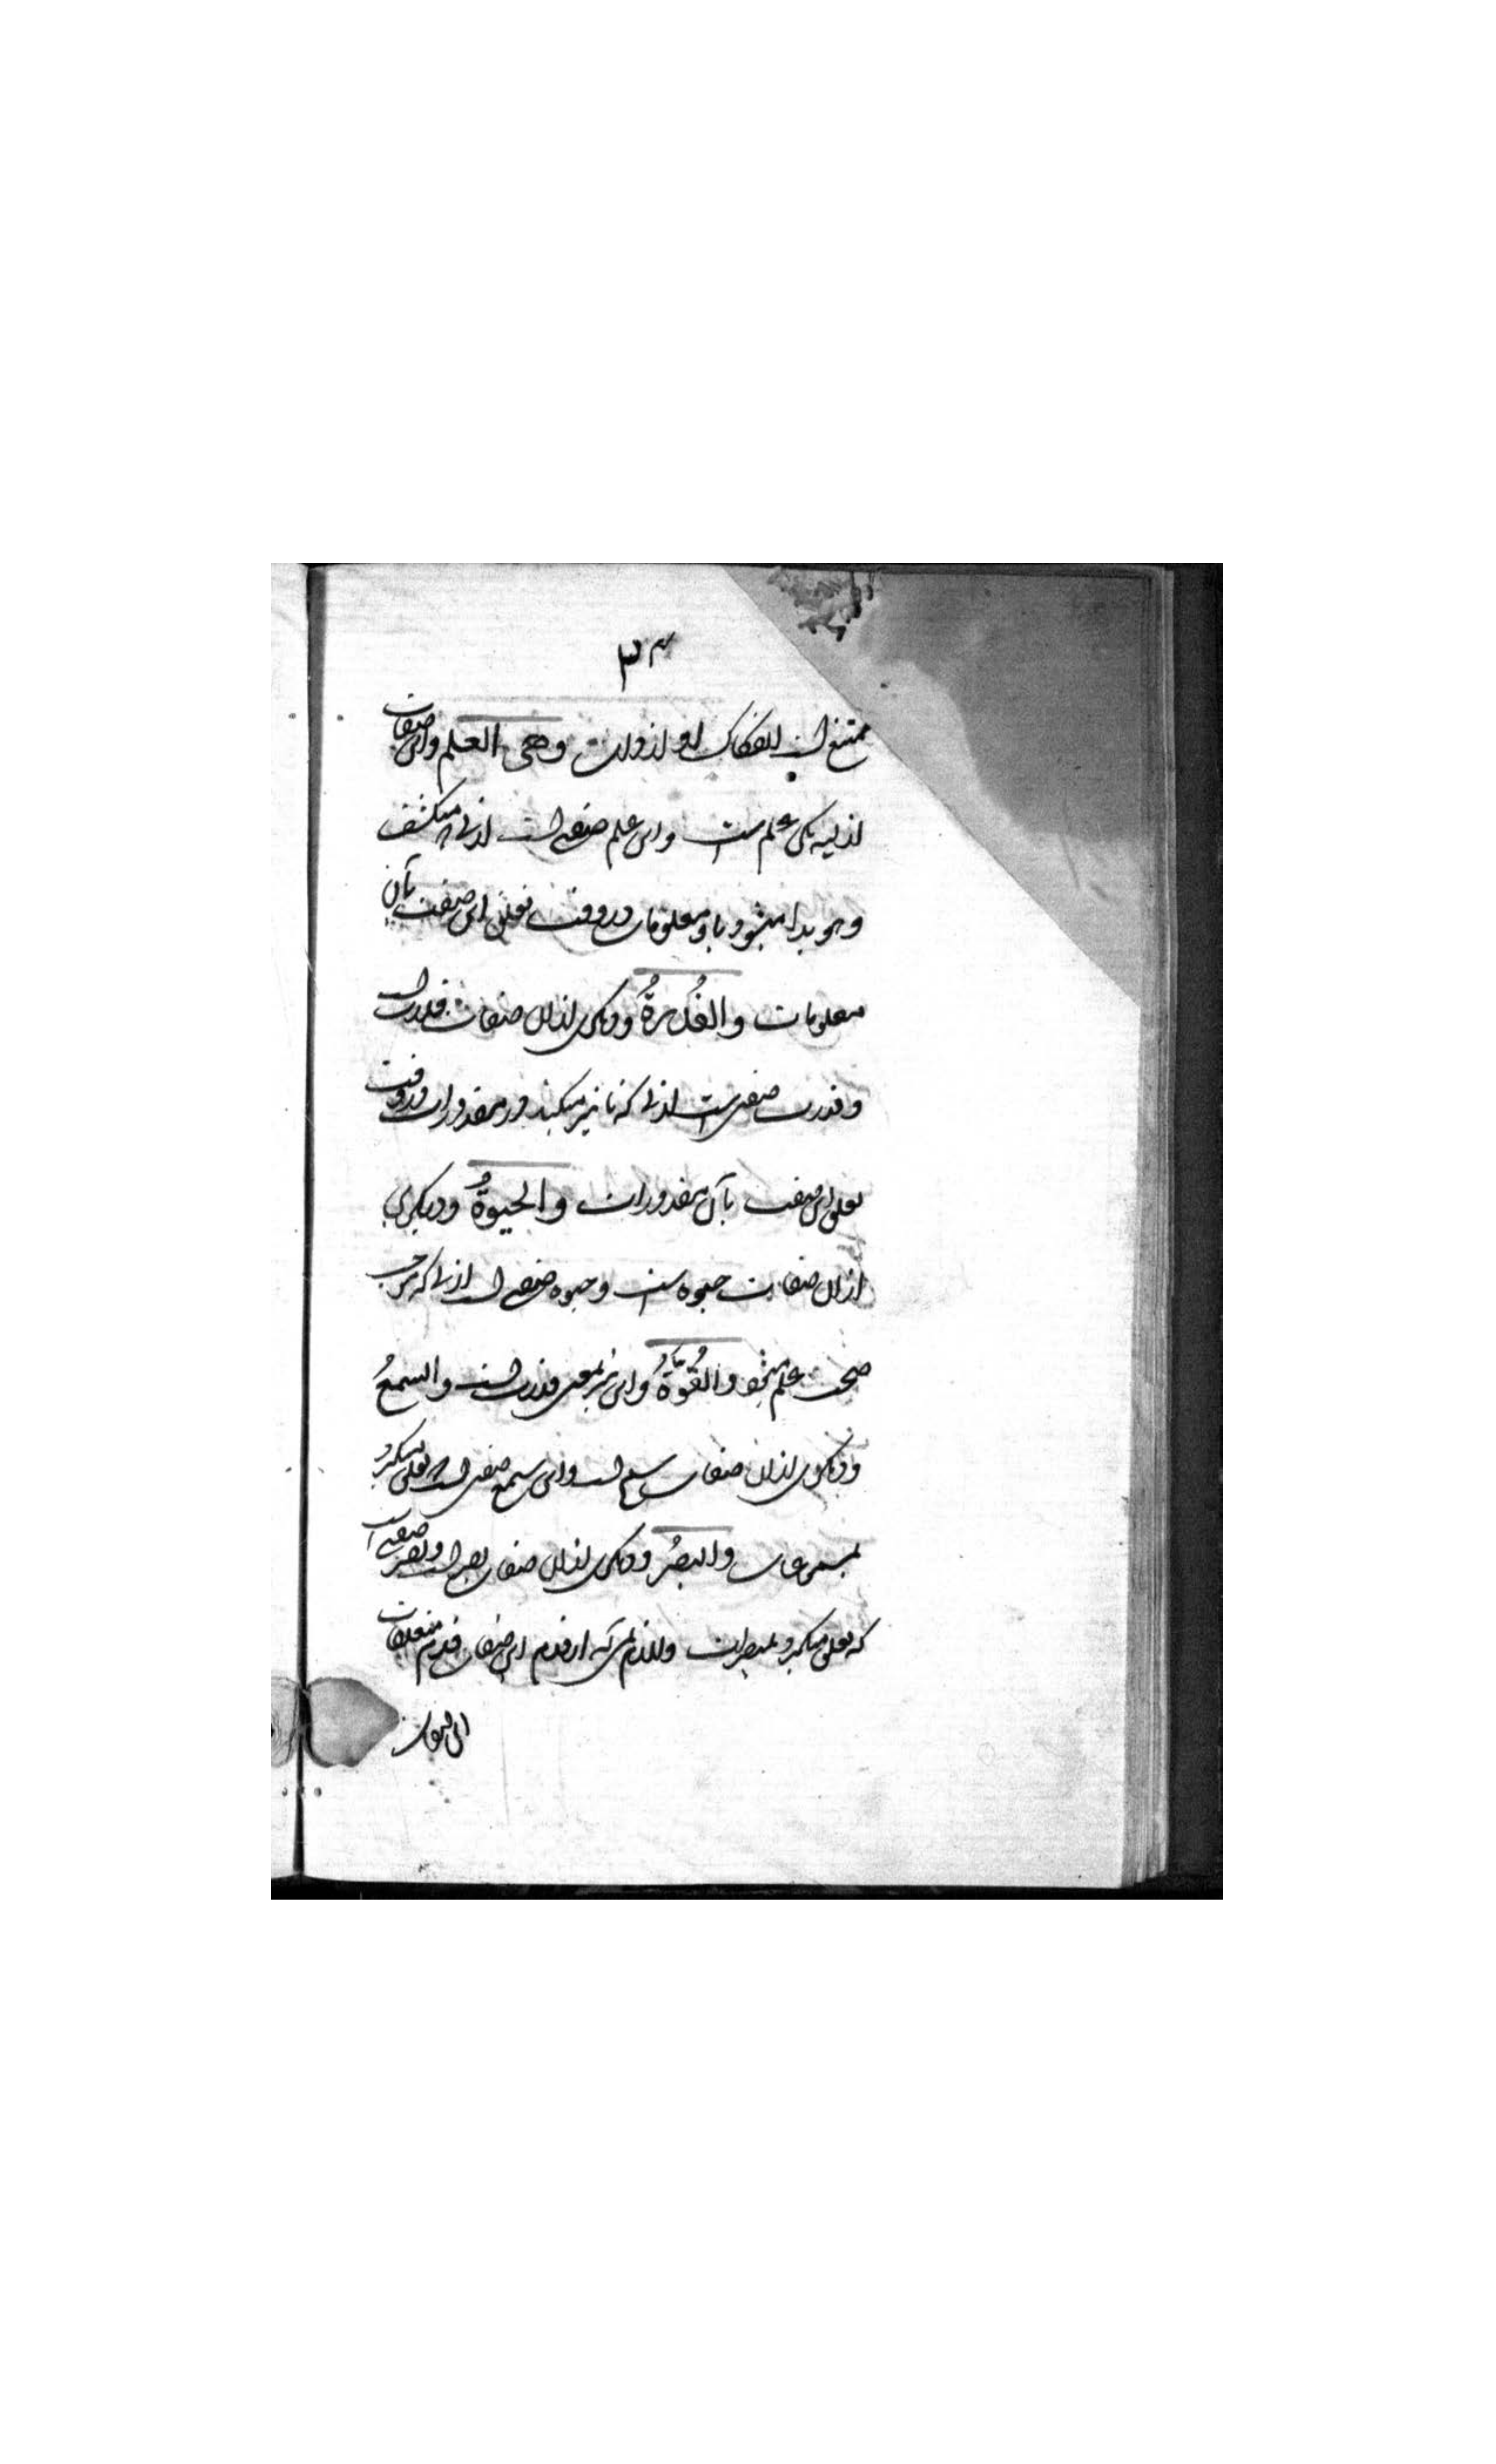 ۳۴
ممتنع است انفکاک او از ذات وهی العلم و این صفات
ازلیه یکی علم ست و این علم صفتی است ازلی منکشف
و هویدا میشود باو معلومات در وقت تعلق این صفت بآن
معلومات والقُدرةُ و دیگری از ان صفات قدرت است
و قدرت صفتی ست ازلی که تاثیر میکند در مقدورات در وقت
تعلق این صفت بآن مقدورات والحیوةُ و دیگری
از ان صفات حیوه ست و حیوه صفتی است ازلی که موجب
صحت علم میشود والقُوّةُ و این نیز بمعنی قدرت است والسمعُ
و دیگری از ان صفات سمع است و این سمع صفتی است که تعلق میگیرد
بمسموعات والبصرُ و دیگری از ان صفات بصر است و بصر صفتی است
که تعلق میگیرد بمبصرات و لازم نمی آید از قدم این صفات قدم متعلقات